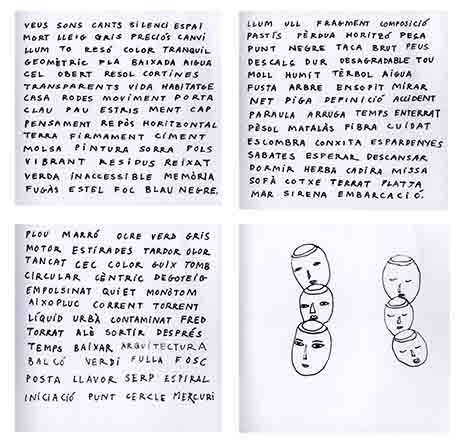 VEUS SONS CANTS SILENCI ESPAI
MORT LLEIG GRIS PRECIÓS CANVI
LLUM TO RESÓ COLOR TRANQUIL
GEOMÈTRIC PLA BAIXADA AIGUA
CEL OBERT RESOL CORTINES
TRANSPARENTS VIDA HABITATGE
CASA RODES MOVIMENT PORTA
CLAU PAU ESTRIS MENT CAP
PENSAMENT REPÒS HORITZONTAL
TERRA FIRMAMENT CIMENT
MOLSA PINTURA SORRA POLS
VIBRANT RESIDUS REIXAT
VERDA INACCESSIBLE MEMÒRIA
FUGAÇ ESTEL FOC BLAU NEGRE.
LLUM ULL FRAGMENT COMPOSICIÓ
PASTÍS PÈRDUA HORITZÓ PEÇA
PUNT NEGRE TACA BRUT PEUS
DESCALÇ DUR DESAGRADABLE TOU
MOLL HUMIT TÈRBOL AIGUA
FUSTA ARBRE ENSOPIT MIRAR
NET PIGA DEFINICIÓ ACCIDENT
PARAULA ARRUGA TEMPS ENTERRAT
PÈSOL MATALÀS FIBRA CUIDAT
ESCOMBRA CONXITA ESPARDENYES
SABATES ESPERAR DESCANSAR
DORMIR HERBA CADIRA MISSA
SOFÀ COTXE TERRAT PLATJA
MAR SIRENA EMBARCACIÓ.
PLOU MARRÓ OCRE VERD GRIS
MOTOR ESTIRADES TARDOR OLOR
TANCAT CEC COLOR GUIX TOMB
CIRCULAR CÈNTRIC DEGOTEIG
EMPOLSINAT QUIET MONÒTOM
AIXOPLUC CORRENT TORRENT
LÍQUID URBÀ CONTAMINAT FRED
TORRAT ALÈ SORTIR DESPRÉS
TEMPS BAIXAR ARQUITECTURA
BALCÓ VERDI FULLA FOSC
POSTA LLAVOR SERP ESPIRAL
INICIACIÓ PUNT CERCLE MERCURI